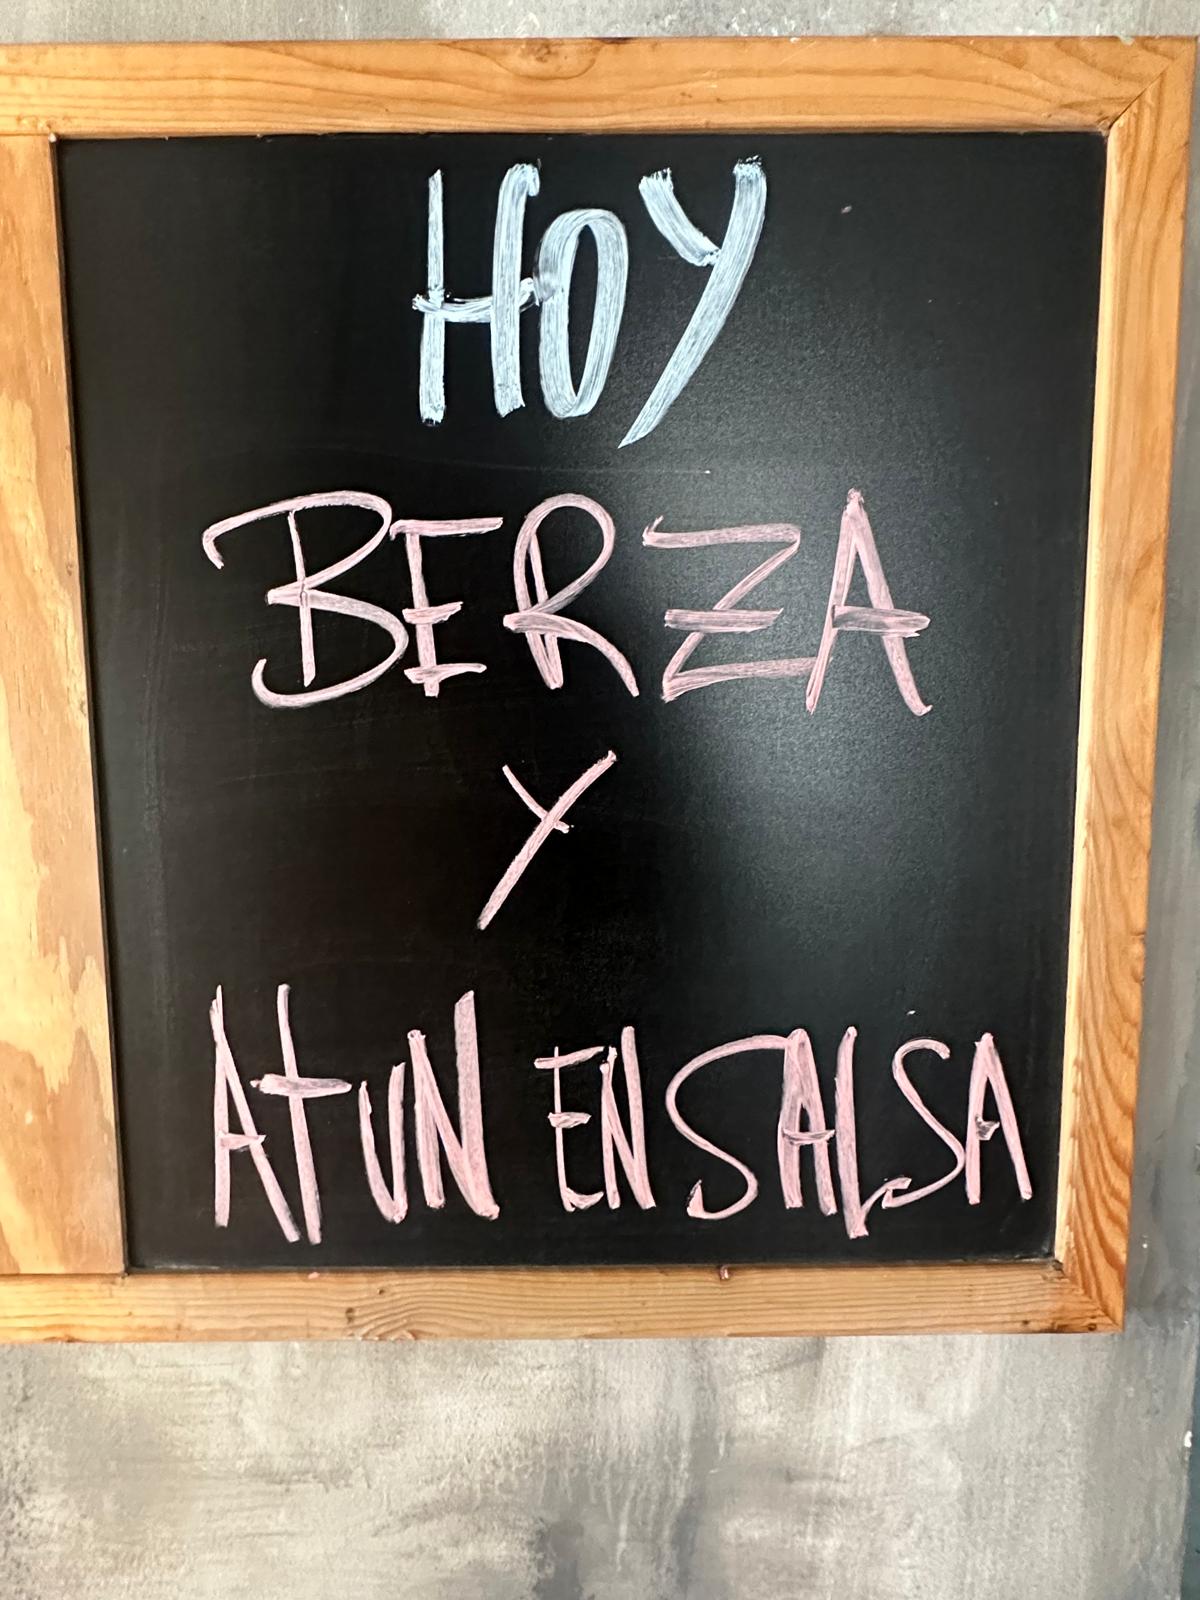 HOY
BERZA
Y
ATUN EN SALSA